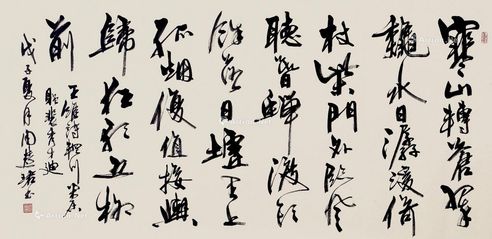 寒山轉蒼翠
秋水日潺湲倚
杖柴門外臨風
聽暮蟬渡頭
餘落日墟里上
孤烟復值接輿
醉狂歌五柳
前
王維詩輞川閒居
贈裴秀才迪
戊子夏月周楚書